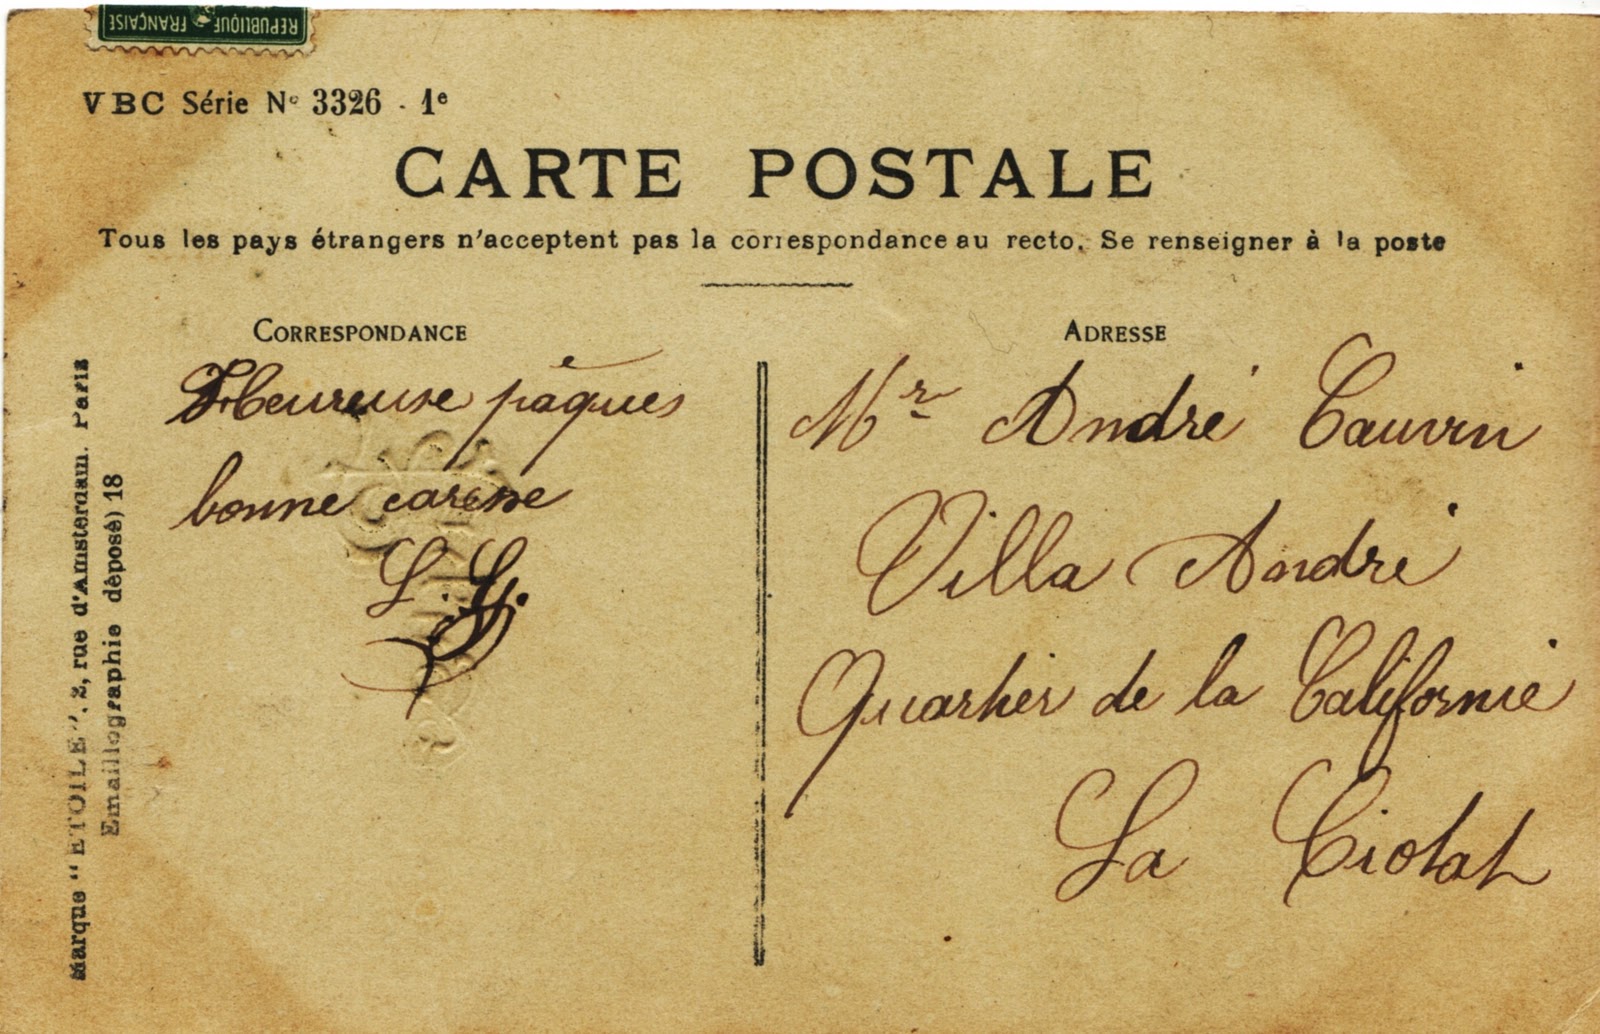 REPUBLIQUE FRANÇAISE
VBC Série N° 3326 - 1e
CARTE POSTALE
Tous les pays étrangers n'acceptent pas la correspondance au recto. Se renseigner à la poste
CORRESPONDANCE
Heureuse pâques
bonne caresse
L. L.
ADRESSE
Mr André Cauvin
Villa André
Quartier de la Californie
La Ciotat
Marque "ETOILE". 2, rue d'Amsterdam. Paris
Emaillographie déposé) 18